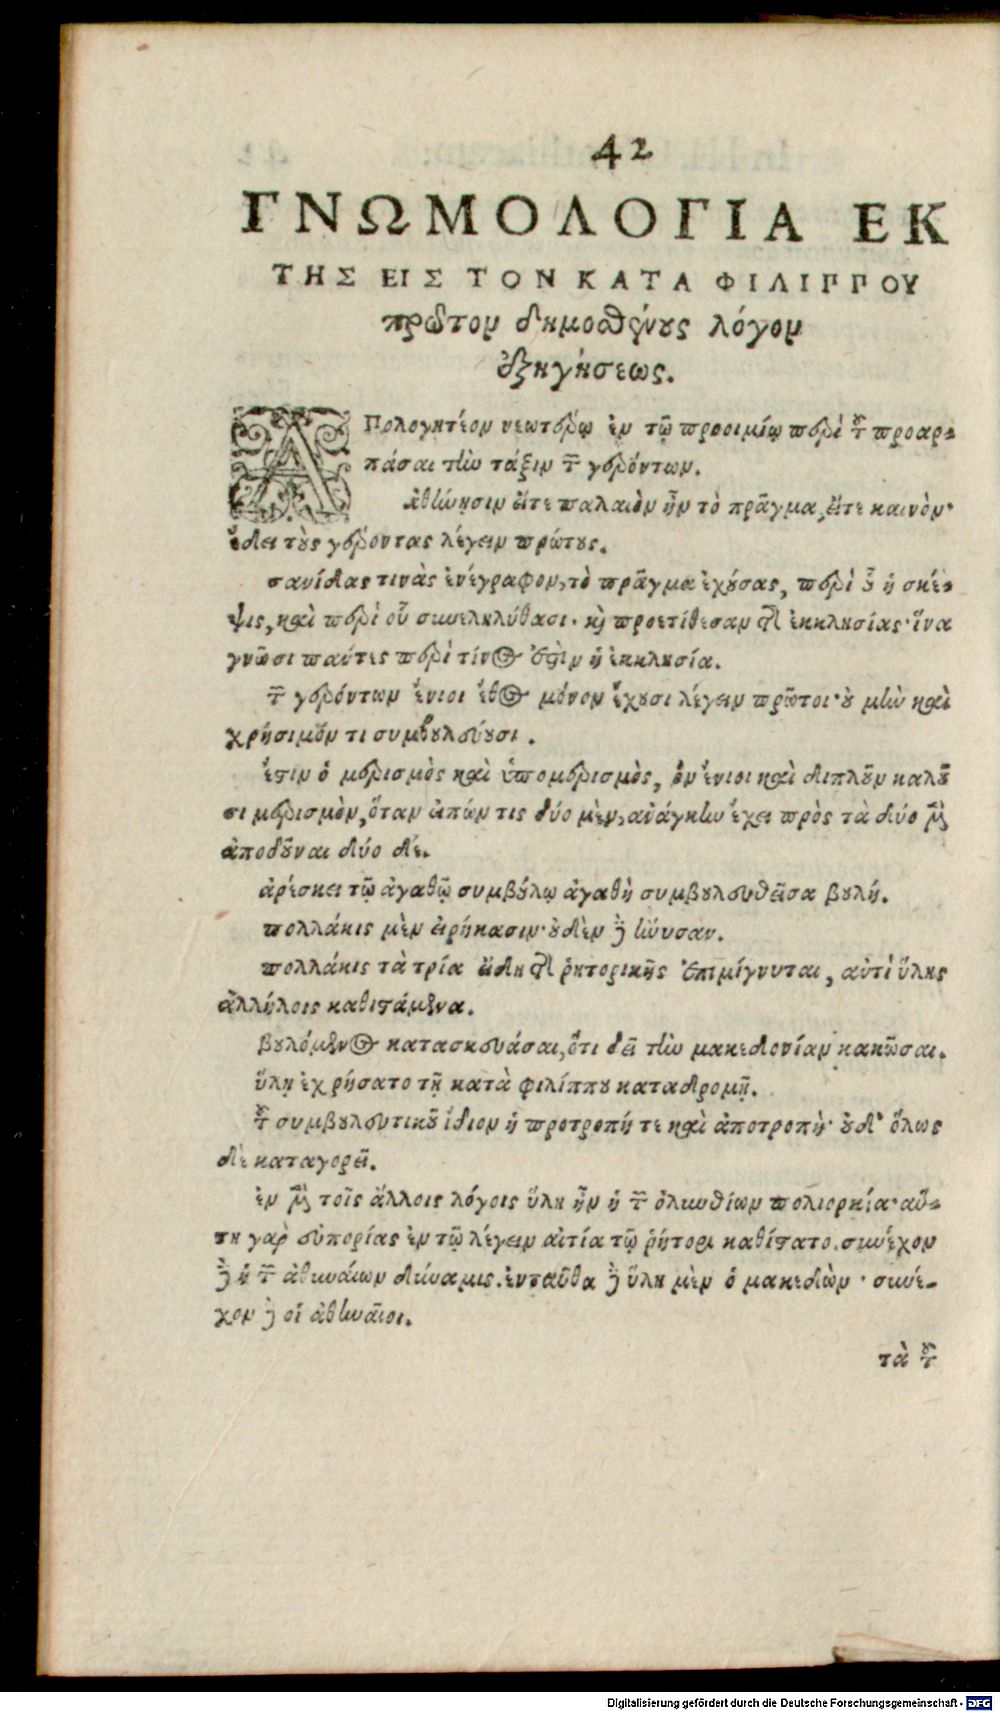 42
ΓΝΩΜΟΛΟΓΙΑ ΕΚ
ΤΗΣ ΕΙΣ ΤΟΝ ΚΑΤΑ ΦΙΛΙΠΠΟΥ
πρῶτον δημοσθένους λόγον
ἐξηγήσεως.
ΑΠολογητέον νεωτέρῳ ἐν τῷ προοιμίῳ περὶ τοῦ προαρ-
πάσαι τὴν τάξιν τῶν γερόντων.
ἀθήνησιν εἴτε παλαιὸν ἦν τὸ πρᾶγμα, εἴτε καινὸν·
ἔδει τοὺς γέροντας λέγειν πρώτους.
σανίδας τινὰς ἐνέγραφον, τὸ πρᾶγμα ἐχούσας, περὶ οὗ ἡ σκέ-
ψις, καὶ περὶ οὗ συνεληλύθασι· καὶ προετίθεσαν τῆς ἐκκλησίας· ἵνα
γνῶσι πάντες περὶ τίνος ἐστὶν ἡ ἐκκλησία.
τῶν γερόντων ἔνιοι ἔθος μόνον ἔχουσι λέγειν πρῶτοι· οὐ μὴν καὶ
χρήσιμόν τι συμβουλεύουσι.
ἔστιν ὁ μερισμὸς καὶ ὑπομερισμὸς, ὃν ἔνιοι καὶ διπλοῦν καλοῦ
σι μερισμὸν, ὅταν εἰπών τις δύο μὲν, ἀνάγκην ἔχει πρὸς τὰ δύο μὲν
ἀποδοῦναι δύο δέ.
ἀρέσκει τῷ ἀγαθῷ συμβούλῳ ἀγαθὴ συμβουλευθεῖσα βουλή.
πολλάκις μὲν εἰρήκασιν· οὐδὲν δὲ ἤνυσαν.
πολλάκις τὰ τρία εἴδη τῆς ῥητορικῆς ἐπιμίγνυται, ἀντὶ ὕλης
ἀλλήλοις καθιστάμενα.
βουλόμενος κατασκευάσαι, ὅτι δεῖ τὴν μακεδονίαν κακῶσαι.
ὕλῃ ἐχρήσατο τῇ κατὰ φιλίππου καταδρομῇ.
τοῦ συμβουλευτικοῦ ἴδιον ἡ προτροπή τε καὶ ἀποτροπὴ· οὐδ' ὅλως
δὲ καταγορεῖ.
ἐν μὲν τοῖς ἄλλοις λόγοις ὕλη ἦν ἡ τῶν ὀλυνθίων πολιορκία· αὕ-
τη γὰρ εὐπορίας ἐν τῷ λέγειν αἰτία τῷ ῥήτορι καθίστατο. συνέχον
δὲ ἡ τῶν ἀθηναίων δύναμις. ἐνταῦθα δὲ ὕλη μὲν ὁ μακεδὼν· συνέ-
χον δὲ οἱ ἀθηναῖοι.
τὰ τοῦ
Digitalisierung gefördert durch die Deutsche Forschungsgemeinschaft - DFG